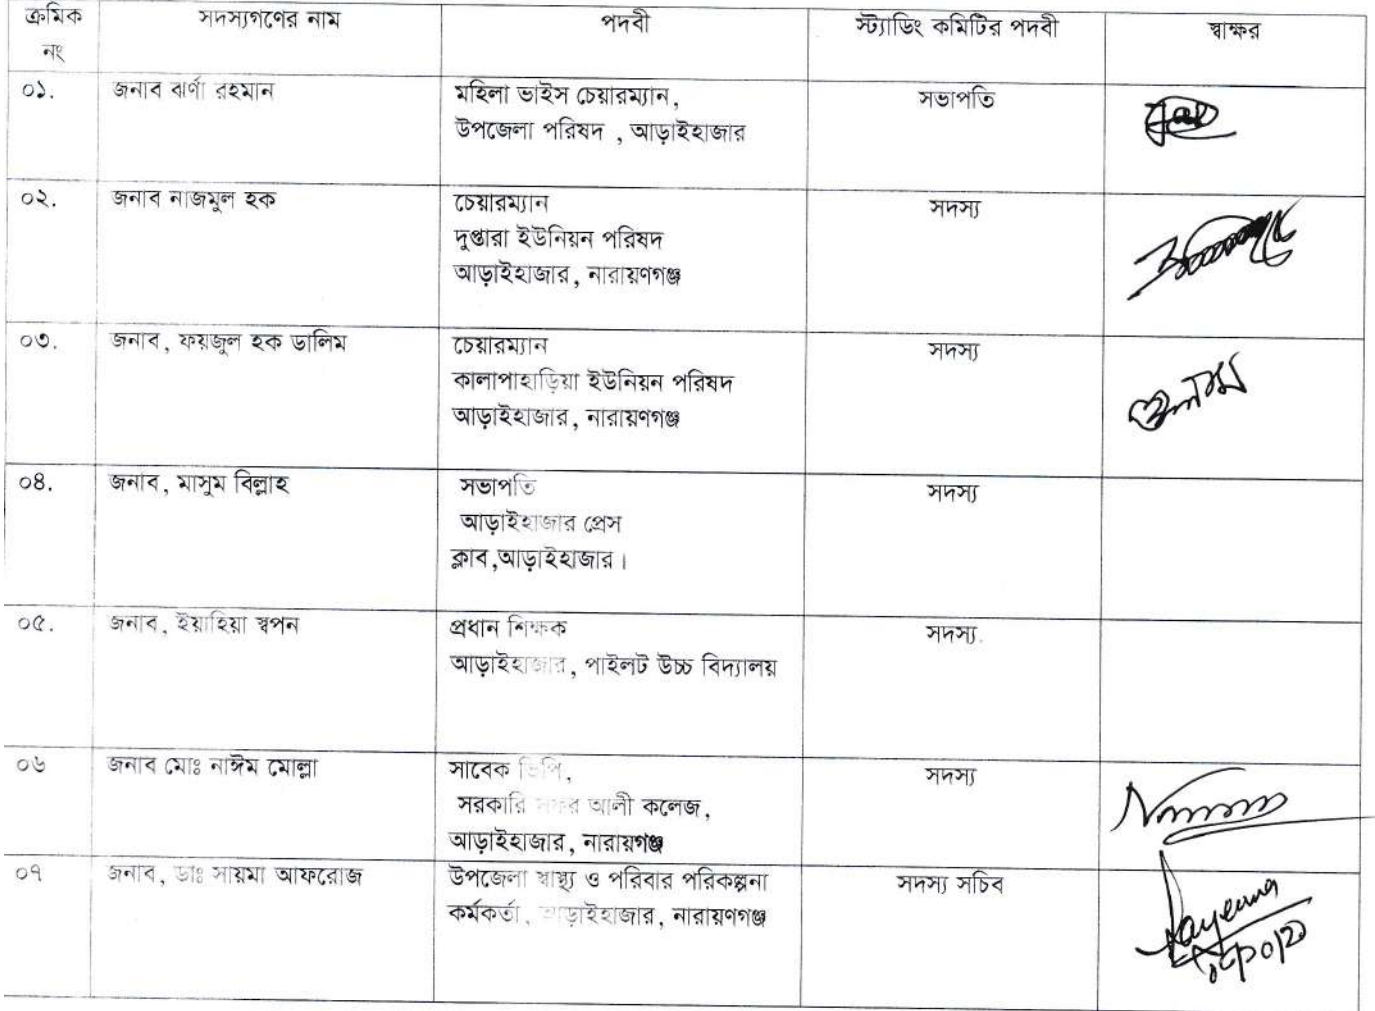 ক্রমিক নং	সদস্যগণের নাম	পদবী	স্ট্যাডিং কমিটির পদবী	স্বাক্ষর
০১.	জনাব ঝর্ণা রহমান	মহিলা ভাইস চেয়ারম্যান,	সভাপতি
উপজেলা পরিষদ , আড়াইহাজার
০২.	জনাব নাজমুল হক	চেয়ারম্যান	সদস্য
দুপ্তারা ইউনিয়ন পরিষদ
আড়াইহাজার, নারায়ণগঞ্জ
০৩.	জনাব, ফয়জুল হক ডালিম	চেয়ারম্যান	সদস্য
কালাপাহাড়িয়া ইউনিয়ন পরিষদ
আড়াইহাজার, নারায়ণগঞ্জ
০৪.	জনাব, মাসুম বিল্লাহ	সভাপতি	সদস্য
আড়াইহাজার প্রেস
ক্লাব,আড়াইহাজার।
০৫.	জনাব, ইয়াহিয়া স্বপন	প্রধান শিক্ষক	সদস্য.
আড়াইহাজার, পাইলট উচ্চ বিদ্যালয়
০৬	জনাব মোঃ নাঈম মোল্লা	সাবেক ভিপি,	সদস্য
সরকারি সফর আলী কলেজ,
আড়াইহাজার, নারায়গঞ্জ
০৭	জনাব, ডাঃ সায়মা আফরোজ	উপজেলা স্বাস্থ্য ও পরিবার পরিকল্পনা	সদস্য সচিব
কর্মকর্তা, আড়াইহাজার, নারায়ণগঞ্জ